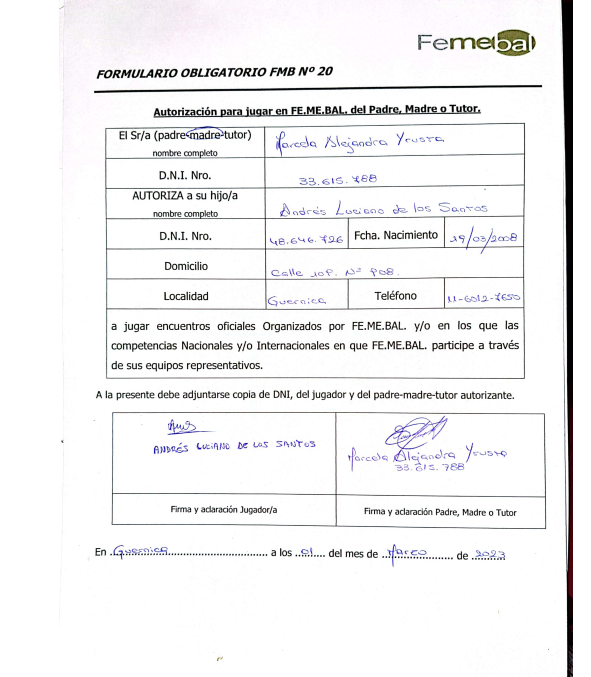 Femebal
FORMULARIO OBLIGATORIO FMB Nº 20
Autorización para jugar en FE.ME.BAL. del Padre, Madre o Tutor.
El Sr/a (padre-madre-tutor) Marcela Alejandra Yrusta
nombre completo
D.N.I. Nro. 33.615.788
AUTORIZA a su hijo/a Andrés Luciano de los Santos
nombre completo
D.N.I. Nro. 48.646.726 Fcha. Nacimiento 19/03/2008
Domicilio Calle 108. Nº 908.
Localidad Guernica Teléfono 11-6012-7650
a jugar encuentros oficiales Organizados por FE.ME.BAL. y/o en los que las
competencias Nacionales y/o Internacionales en que FE.ME.BAL. participe a través
de sus equipos representativos.
A la presente debe adjuntarse copia de DNI, del jugador y del padre-madre-tutor autorizante.
ANDRÉS LUCIANO DE LOS SANTOS
Marcela Alejandra Yrusta
33.615.788
Firma y aclaración Jugador/a Firma y aclaración Padre, Madre o Tutor
En .Guernica................................. a los ..01.... del mes de ..Marzo......... de .2023